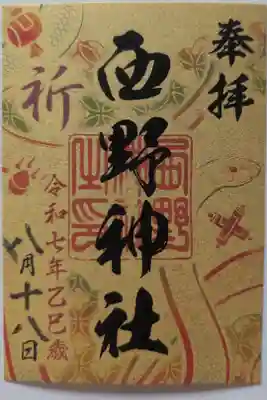 奉拝
西野神社
祈
令和七年乙巳歳
八月十八日